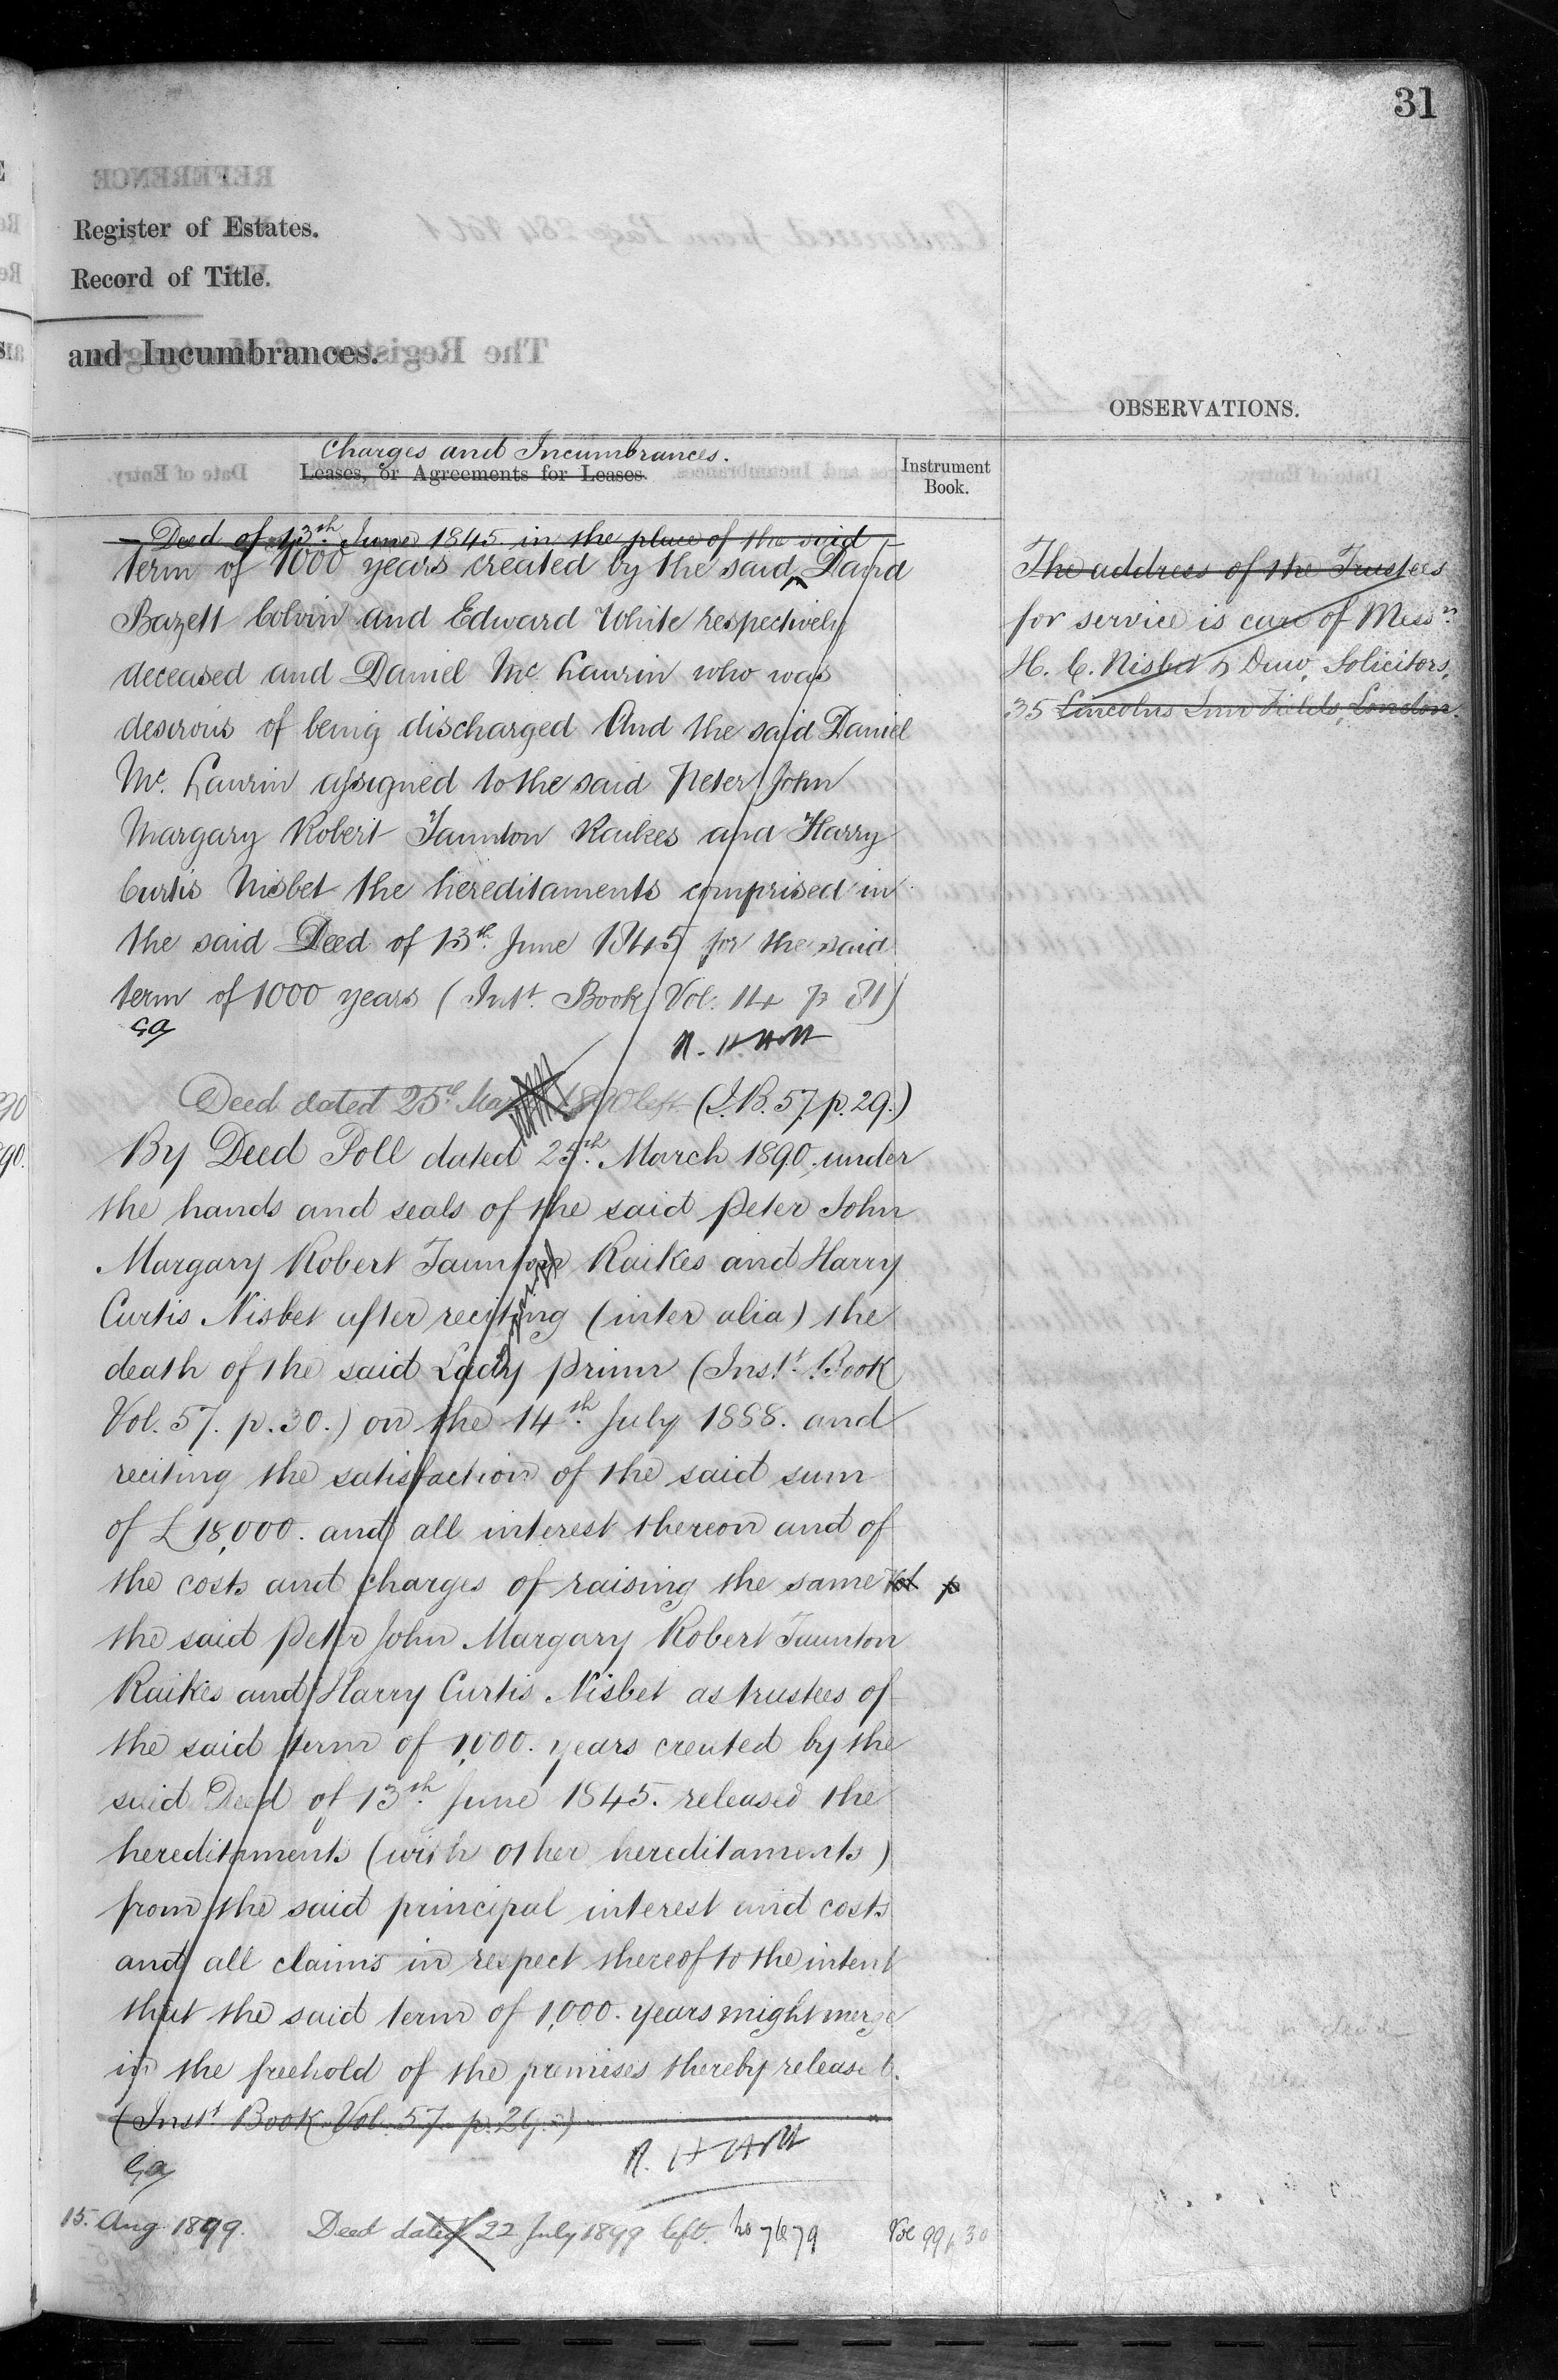 31
Register of Estates.
Record of Title.
and Incumbrances.
OBSERVATIONS.
Charges and Incumbrances.
Leases, or Agreements for Leases.
Instrument
Book.
Deed of 13th June 1845 in the place of the said
term of 1000 years created by the said David
Bazett Colvin and Edward White respectively
deceased and Daniel Mc Laurin who was
desirous of being discharged And the said Daniel
Mc. Laurin assigned to the said Peter John
Margary Robert Taunton Raikes and Harry
Curtis Nisbet the hereditaments comprised in
the said Deed of 13th June 1845 for the said
term of 1000 years (Inst. Book Vol. 14 p 81)
Deed dated 25th 1890 left (I.B. 57, p. 29.)
By Deed Poll dated 25th March 1890 under
the hands and seals of the said Peter John
Margary Robert Taunton Raikes and Harry
Curtis Nisbet after reciting (inter alia) the
death of the said Lady Prinn (Inst. Book
Vol. 57. p. 30.) on the 14th July 1888. and
reciting the satisfaction of the said sum
of £18,000. and all interest thereon and of
the costs and charges of raising the same Vol p
the said Peter John Margary Robert Taunton
Raikes and Harry Curtis Nisbet as trustees of
the said term of 1,000. years created by the
said Deed of 13th June 1845. released the
hereditaments (with other hereditaments)
from the said principal interest and costs
and all claims in respect thereof to the intent
that the said term of 1,000. years might merge
in the freehold of the premises thereby released.
(Inst Book Vol. 57 p. 29.)
15. Aug. 1899. Deed dated 22 July 1899 left. No 7679 Vol 99 p 30
The address of the Trustees
for service is care of Messrs
H. C. Nisbet & Daw, Solicitors,
35 Lincolns Inn Fields, London.